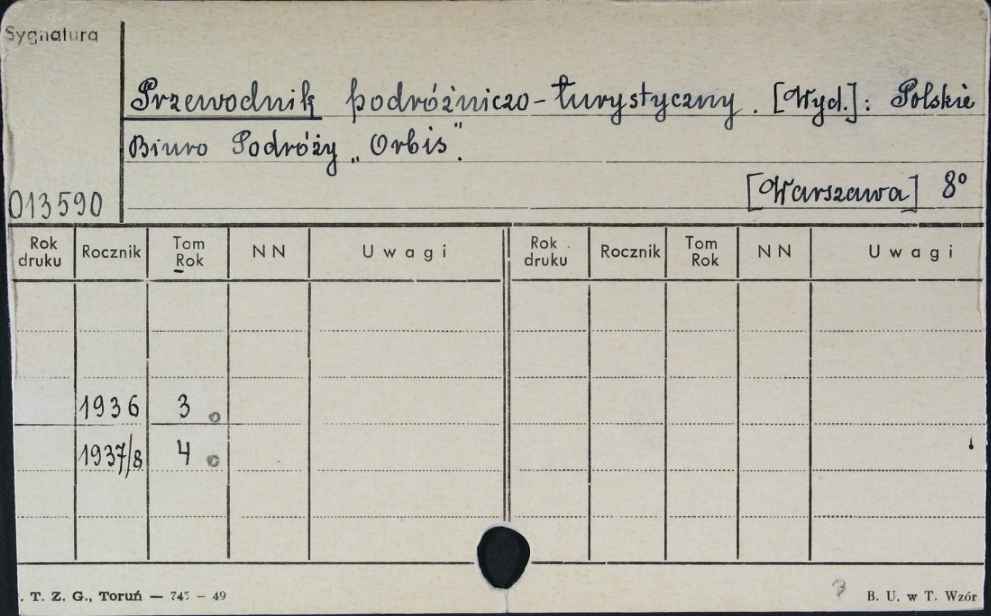 Sygnatura
Przewodnik podróżniczo-turystyczny. [Wyd.]: Polskie
Biuro Podróży „Orbis".
013590 [Warszawa] 8°
Rok druku Rocznik Tom Rok NN Uwagi Rok druku Rocznik Tom Rok NN Uwagi
1936 3
1937/8 4
. T. Z. G., Toruń — 745 – 49 B. U. w T. Wzór